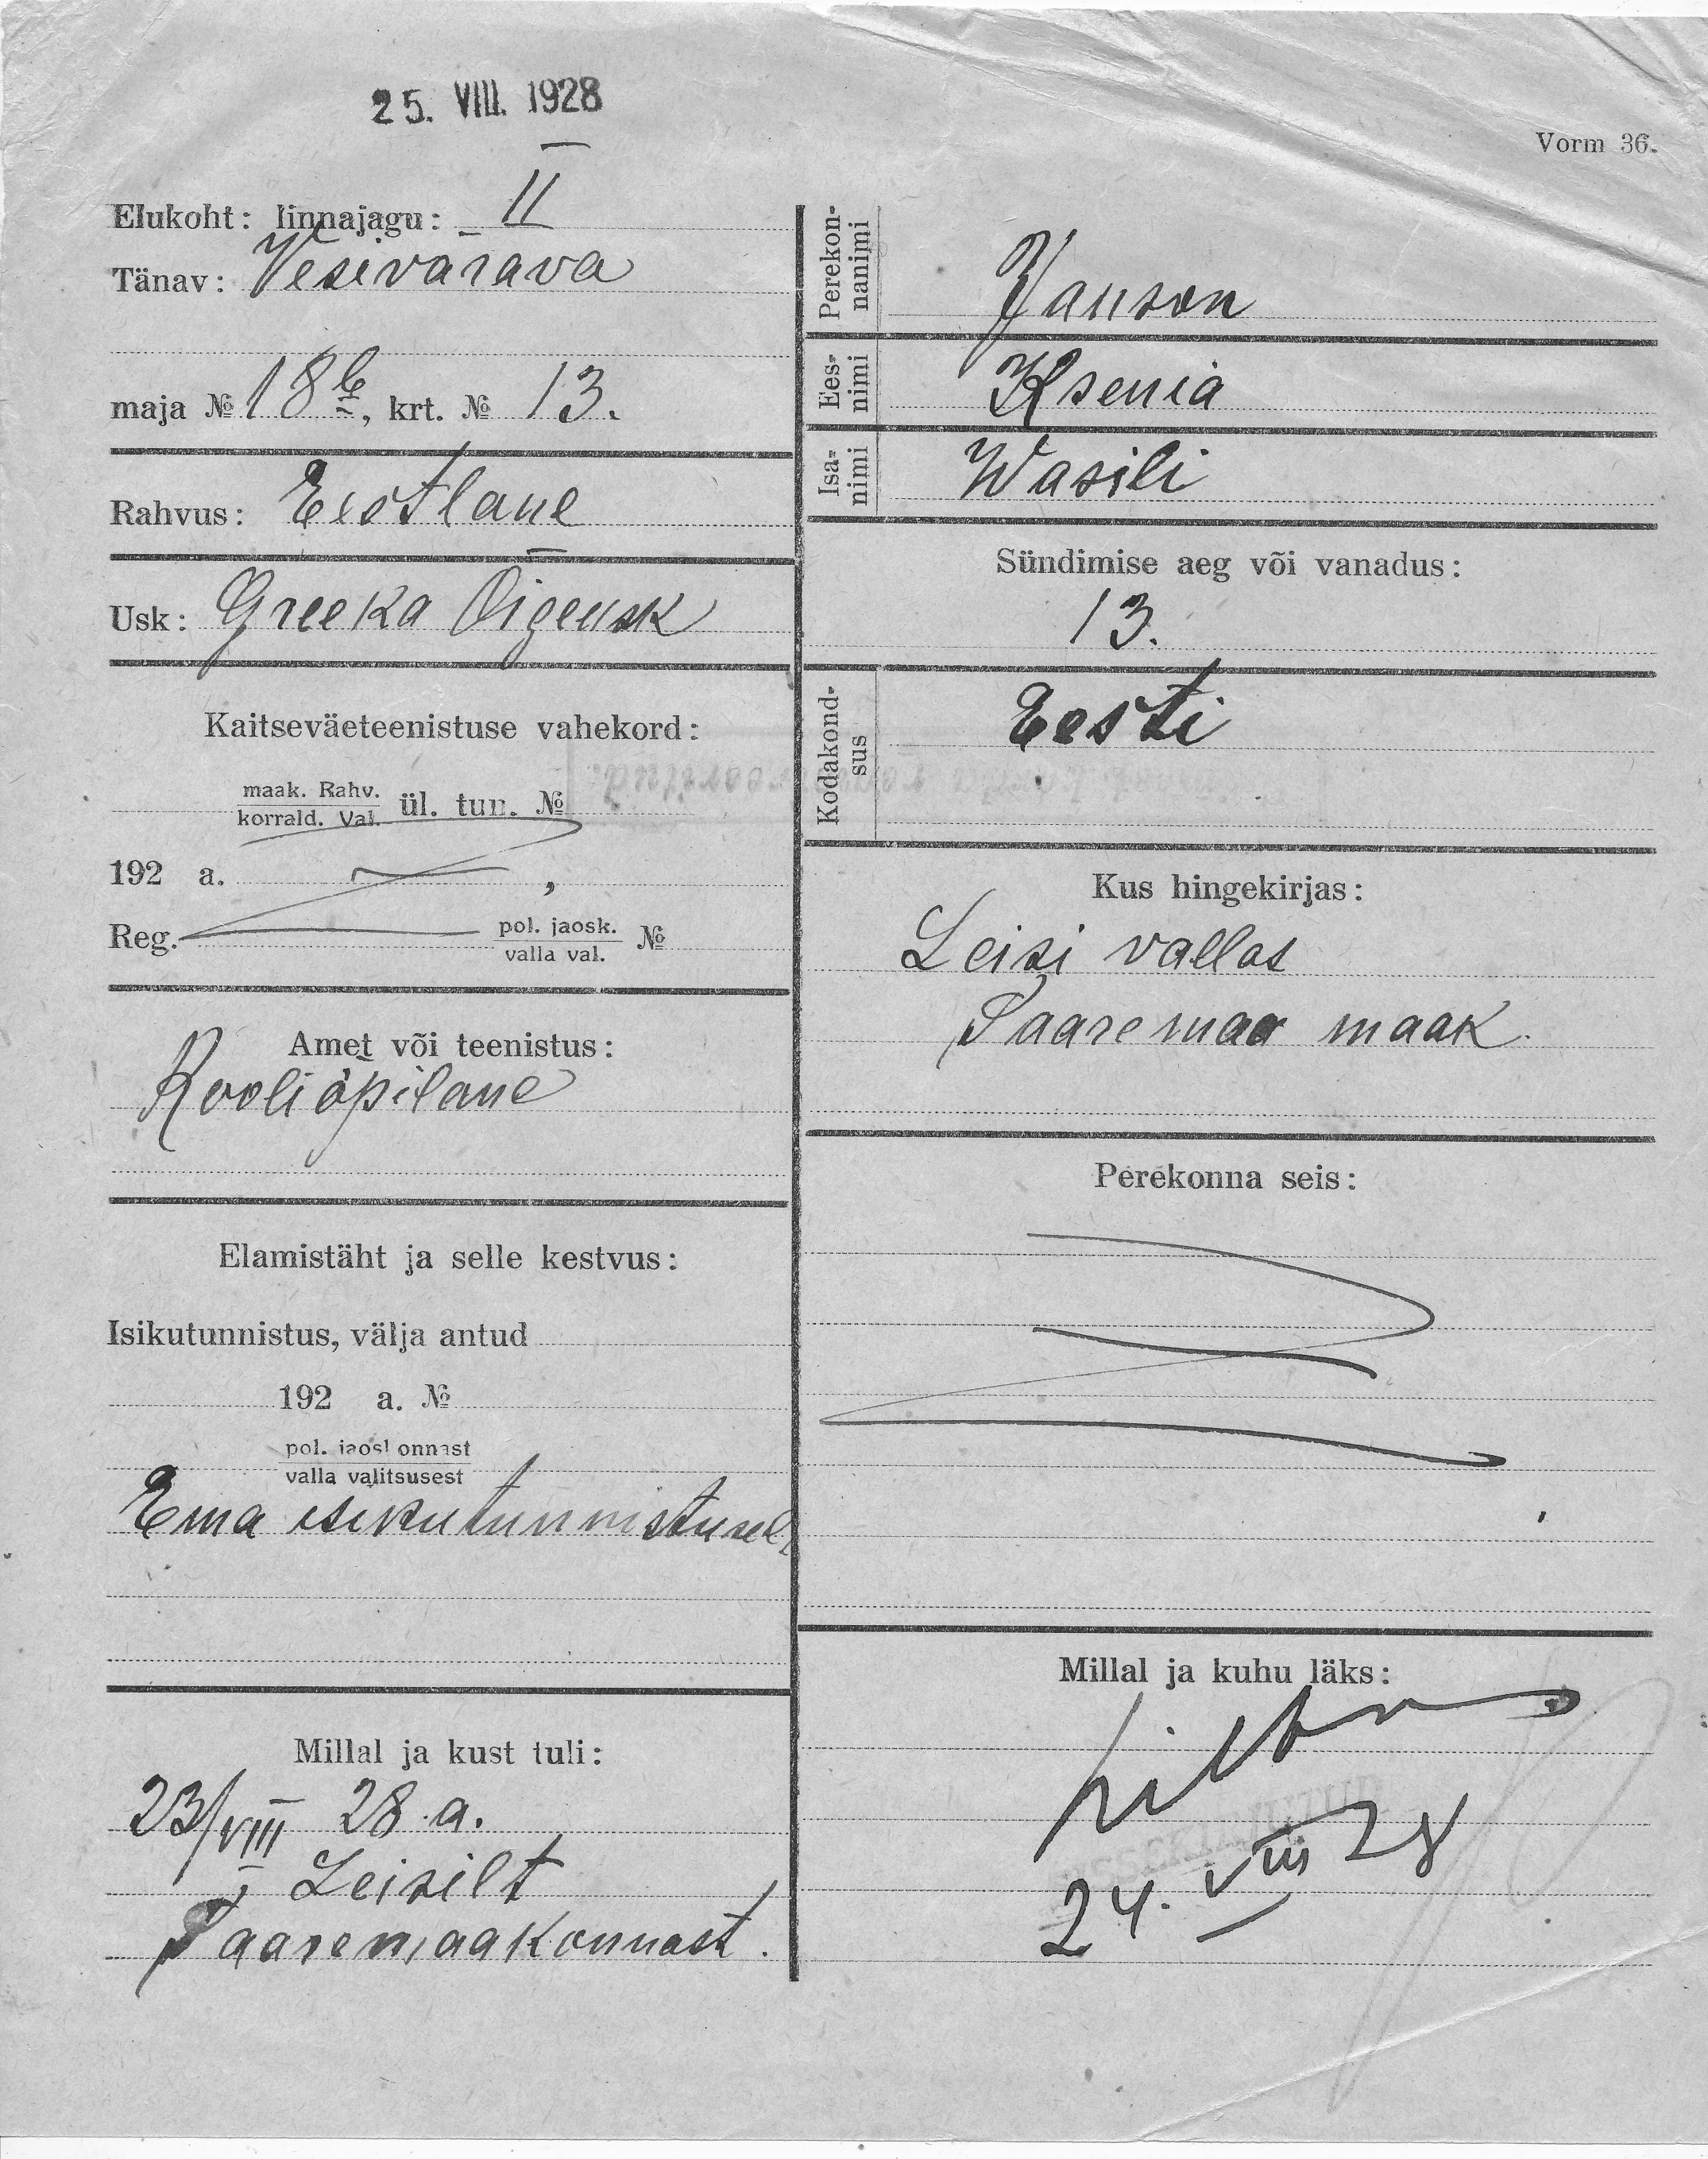 25. VIII. 1928
Vorm 36.
Elukoht: linnajagu: II
Tänav: Vesivärava
maja № 18b, krt. № 13.
Rahvus: Eestlane
Usk: Greeka Õigeusk
Kaitseväeteenistuse vahekord:
maak. Rahv.
korrald. Val. ül. tun. №
192 a. ,
Reg. pol. jaosk.
valla val. №
Amet või teenistus:
Kooliõpilane
Elamistäht ja selle kestvus:
Isikutunnistus, välja antud
192 a. №
pol. jaoskonnast
valla valitsusest
Ema isikutunnistusel
Millal ja kust tuli:
23/VIII 28 a.
Leisilt
Saaremaakonnast.
Perekon-
nanimi
Janson
Ees-
nimi
Ksenia
Isa-
nimi
Wasili
Sündimise aeg või vanadus:
13.
Kodakond-
sus
Eesti
Kus hingekirjas:
Leisi vallas
Saaremaa maak.
Perekonna seis:
Millal ja kuhu läks:
24. VIII 28